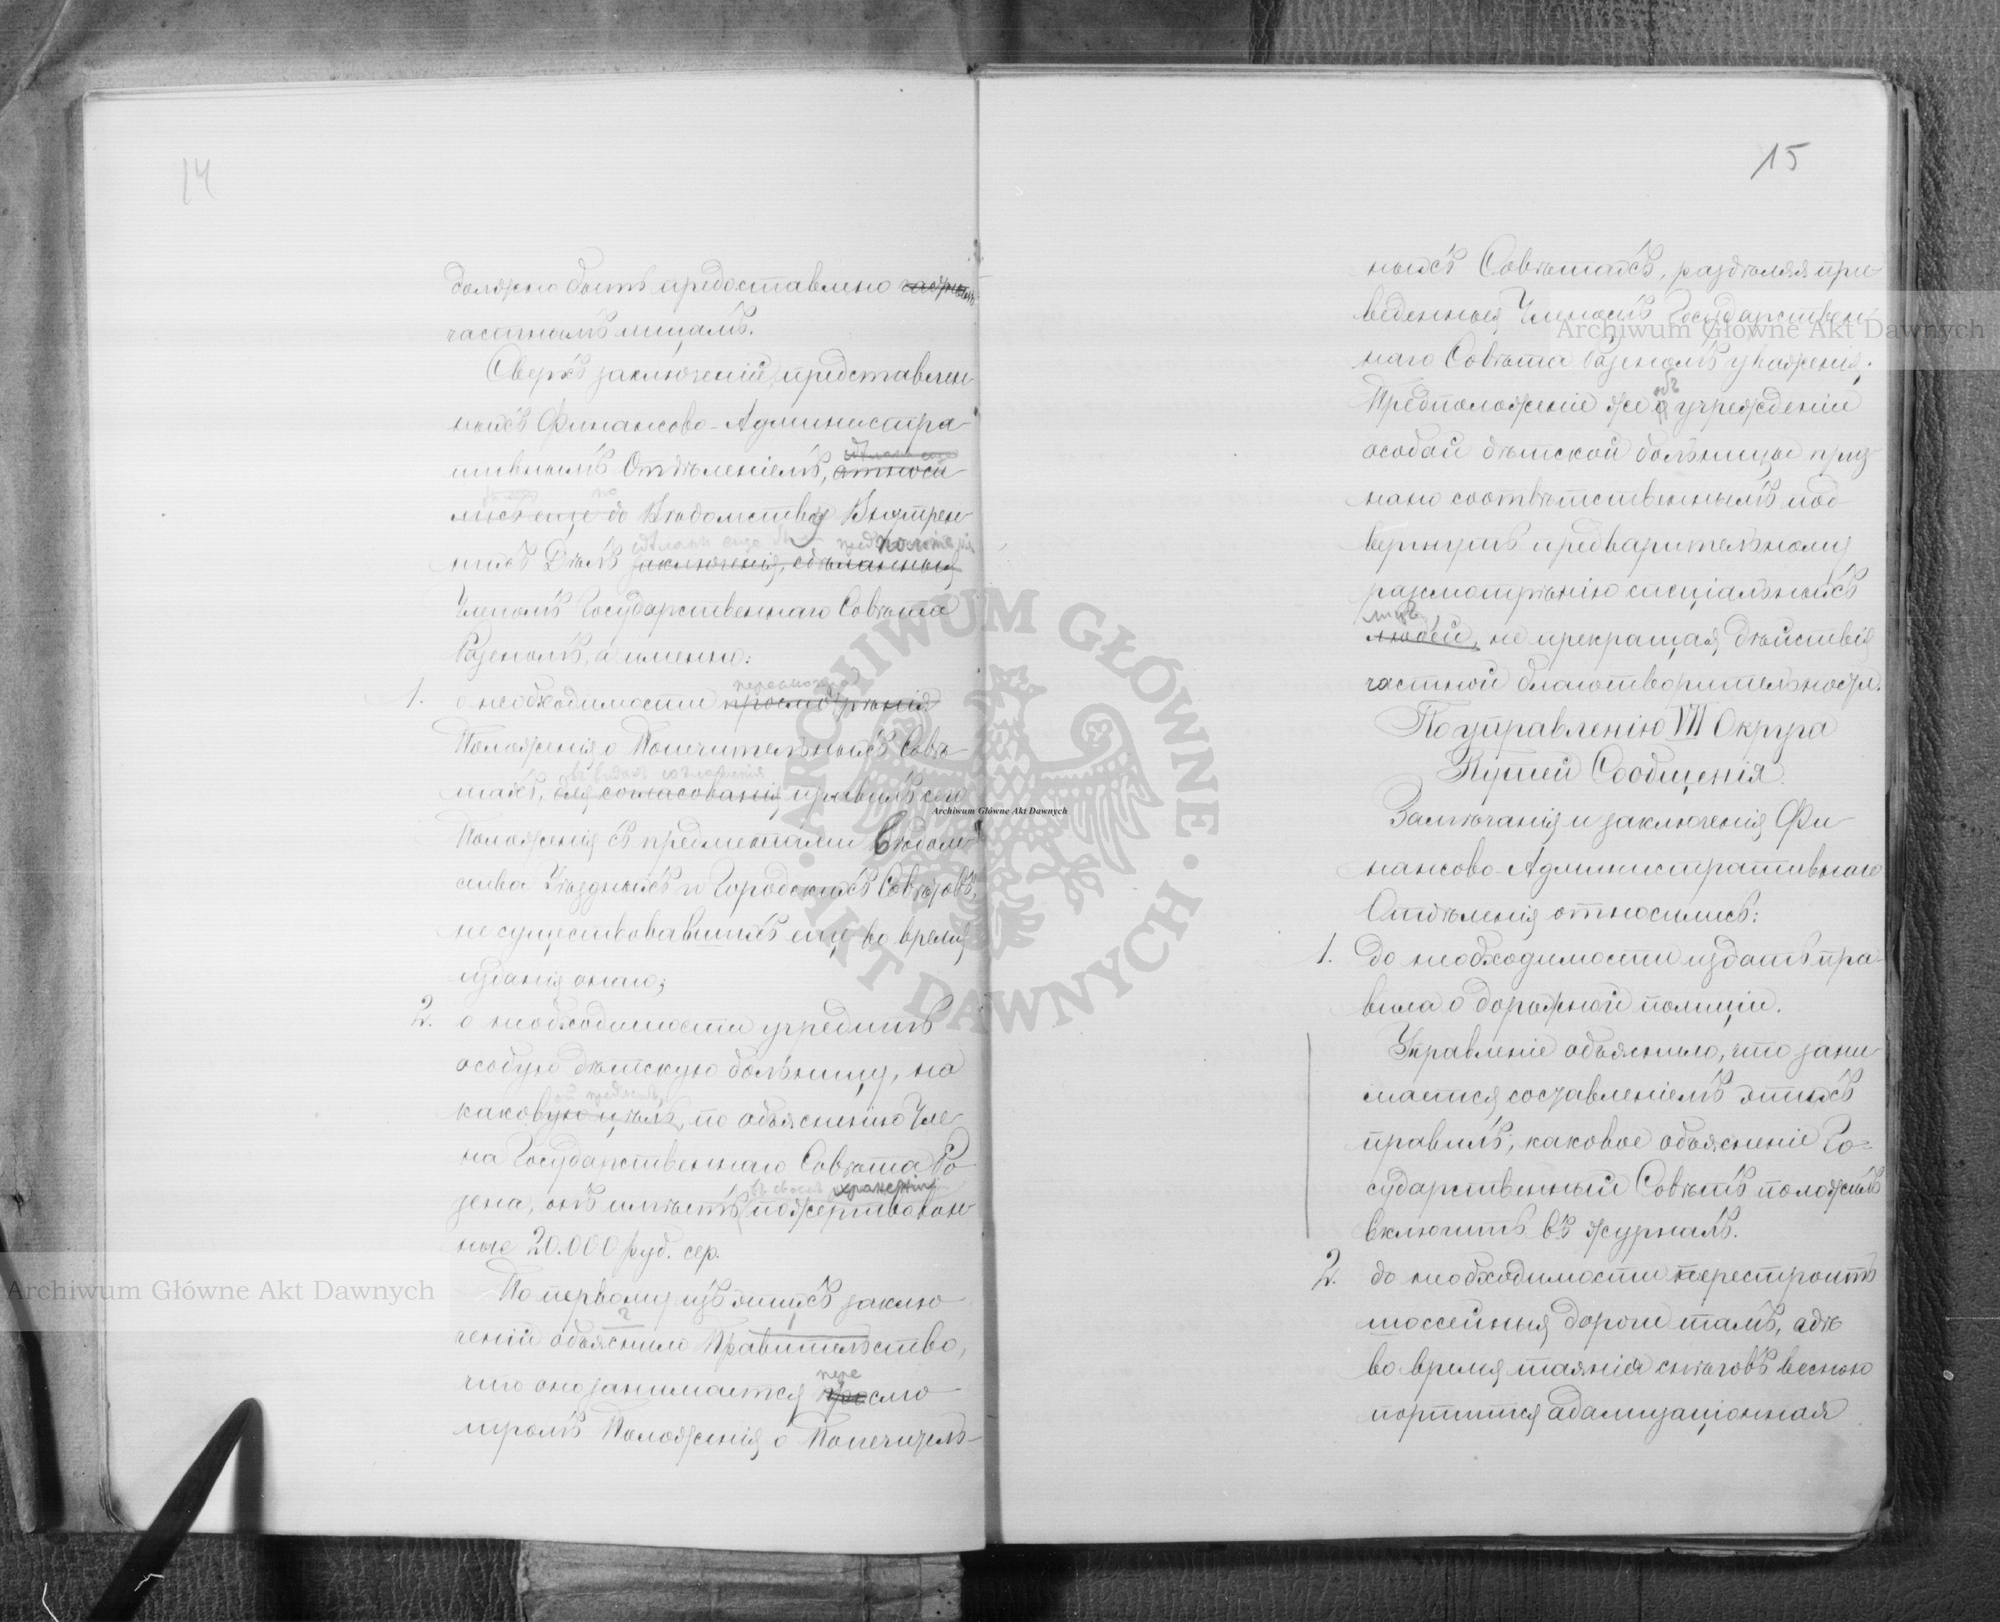 14
должно быть предоставлено
частнымъ лицамъ.
Сверхъ заключеній, представлен-
ныхъ Финансово-Администра-
тивнымъ Отдѣленіемъ, относи
лись еще до Вѣдомства Внутрен-
нихъ Дѣлъ заключенія, сдѣланныя
Членомъ Государственнаго Совѣта
Розеномъ, а именно:
1. о необходимости просмотрѣнія
Положенія о Попечительныхъ Совѣ-
тахъ, для согласованія правилъ сего
Положенія съ предметами вѣдом-
ства Уѣздныхъ и Городскихъ Совѣтовъ,
не существовавшихъ еще во время
изданія онаго;
2. о необходимости учредить
особую дѣтскую больницу, на
каковую цѣль, по объясненію Чле-
на Государственнаго Совѣта Ро-
зена, онъ имѣетъ пожертвован-
ные 20.000 руб. сер.
По первому изъ этихъ заклю-
ченій объяснило Правительство,
что оно занимается пересмо-
тромъ Положенія о Попечитель-
15
ныхъ Совѣтахъ, раздѣляя при-
веденныя Членомъ Государствен-
наго Совѣта Розеномъ уваженія.
Предположеніе же объ учрежденіи
особой дѣтской больницы приз-
нано соотвѣтственнымъ под-
вергнуть предварительному
разсмотрѣнію спеціальныхъ
лицъ
людей, не прекращая дѣйствія
частной благотворительности.
По управленію VII Округа
Путей Сообщенія.
Замѣчанія и заключенія Фи-
нансово-Административнаго
Отдѣленія относились:
1. до необходимости издать пра-
вила о дорожной полиціи.
Управленіе объяснило, что зани-
мается составленіемъ этихъ
правилъ, каковое объясненіе Го-
сударственный Совѣтъ положилъ
включить въ журналъ.
2. до необходимости перестроить
шоссейныя дороги тамъ, гдѣ
во время таянія снѣговъ весною
портится
Archiwum Główne Akt Dawnych
Archiwum Główne Akt Dawnych
Archiwum Główne Akt Dawnych
ARCHIWUM GŁÓWNE · AKT DAWNYCH ·